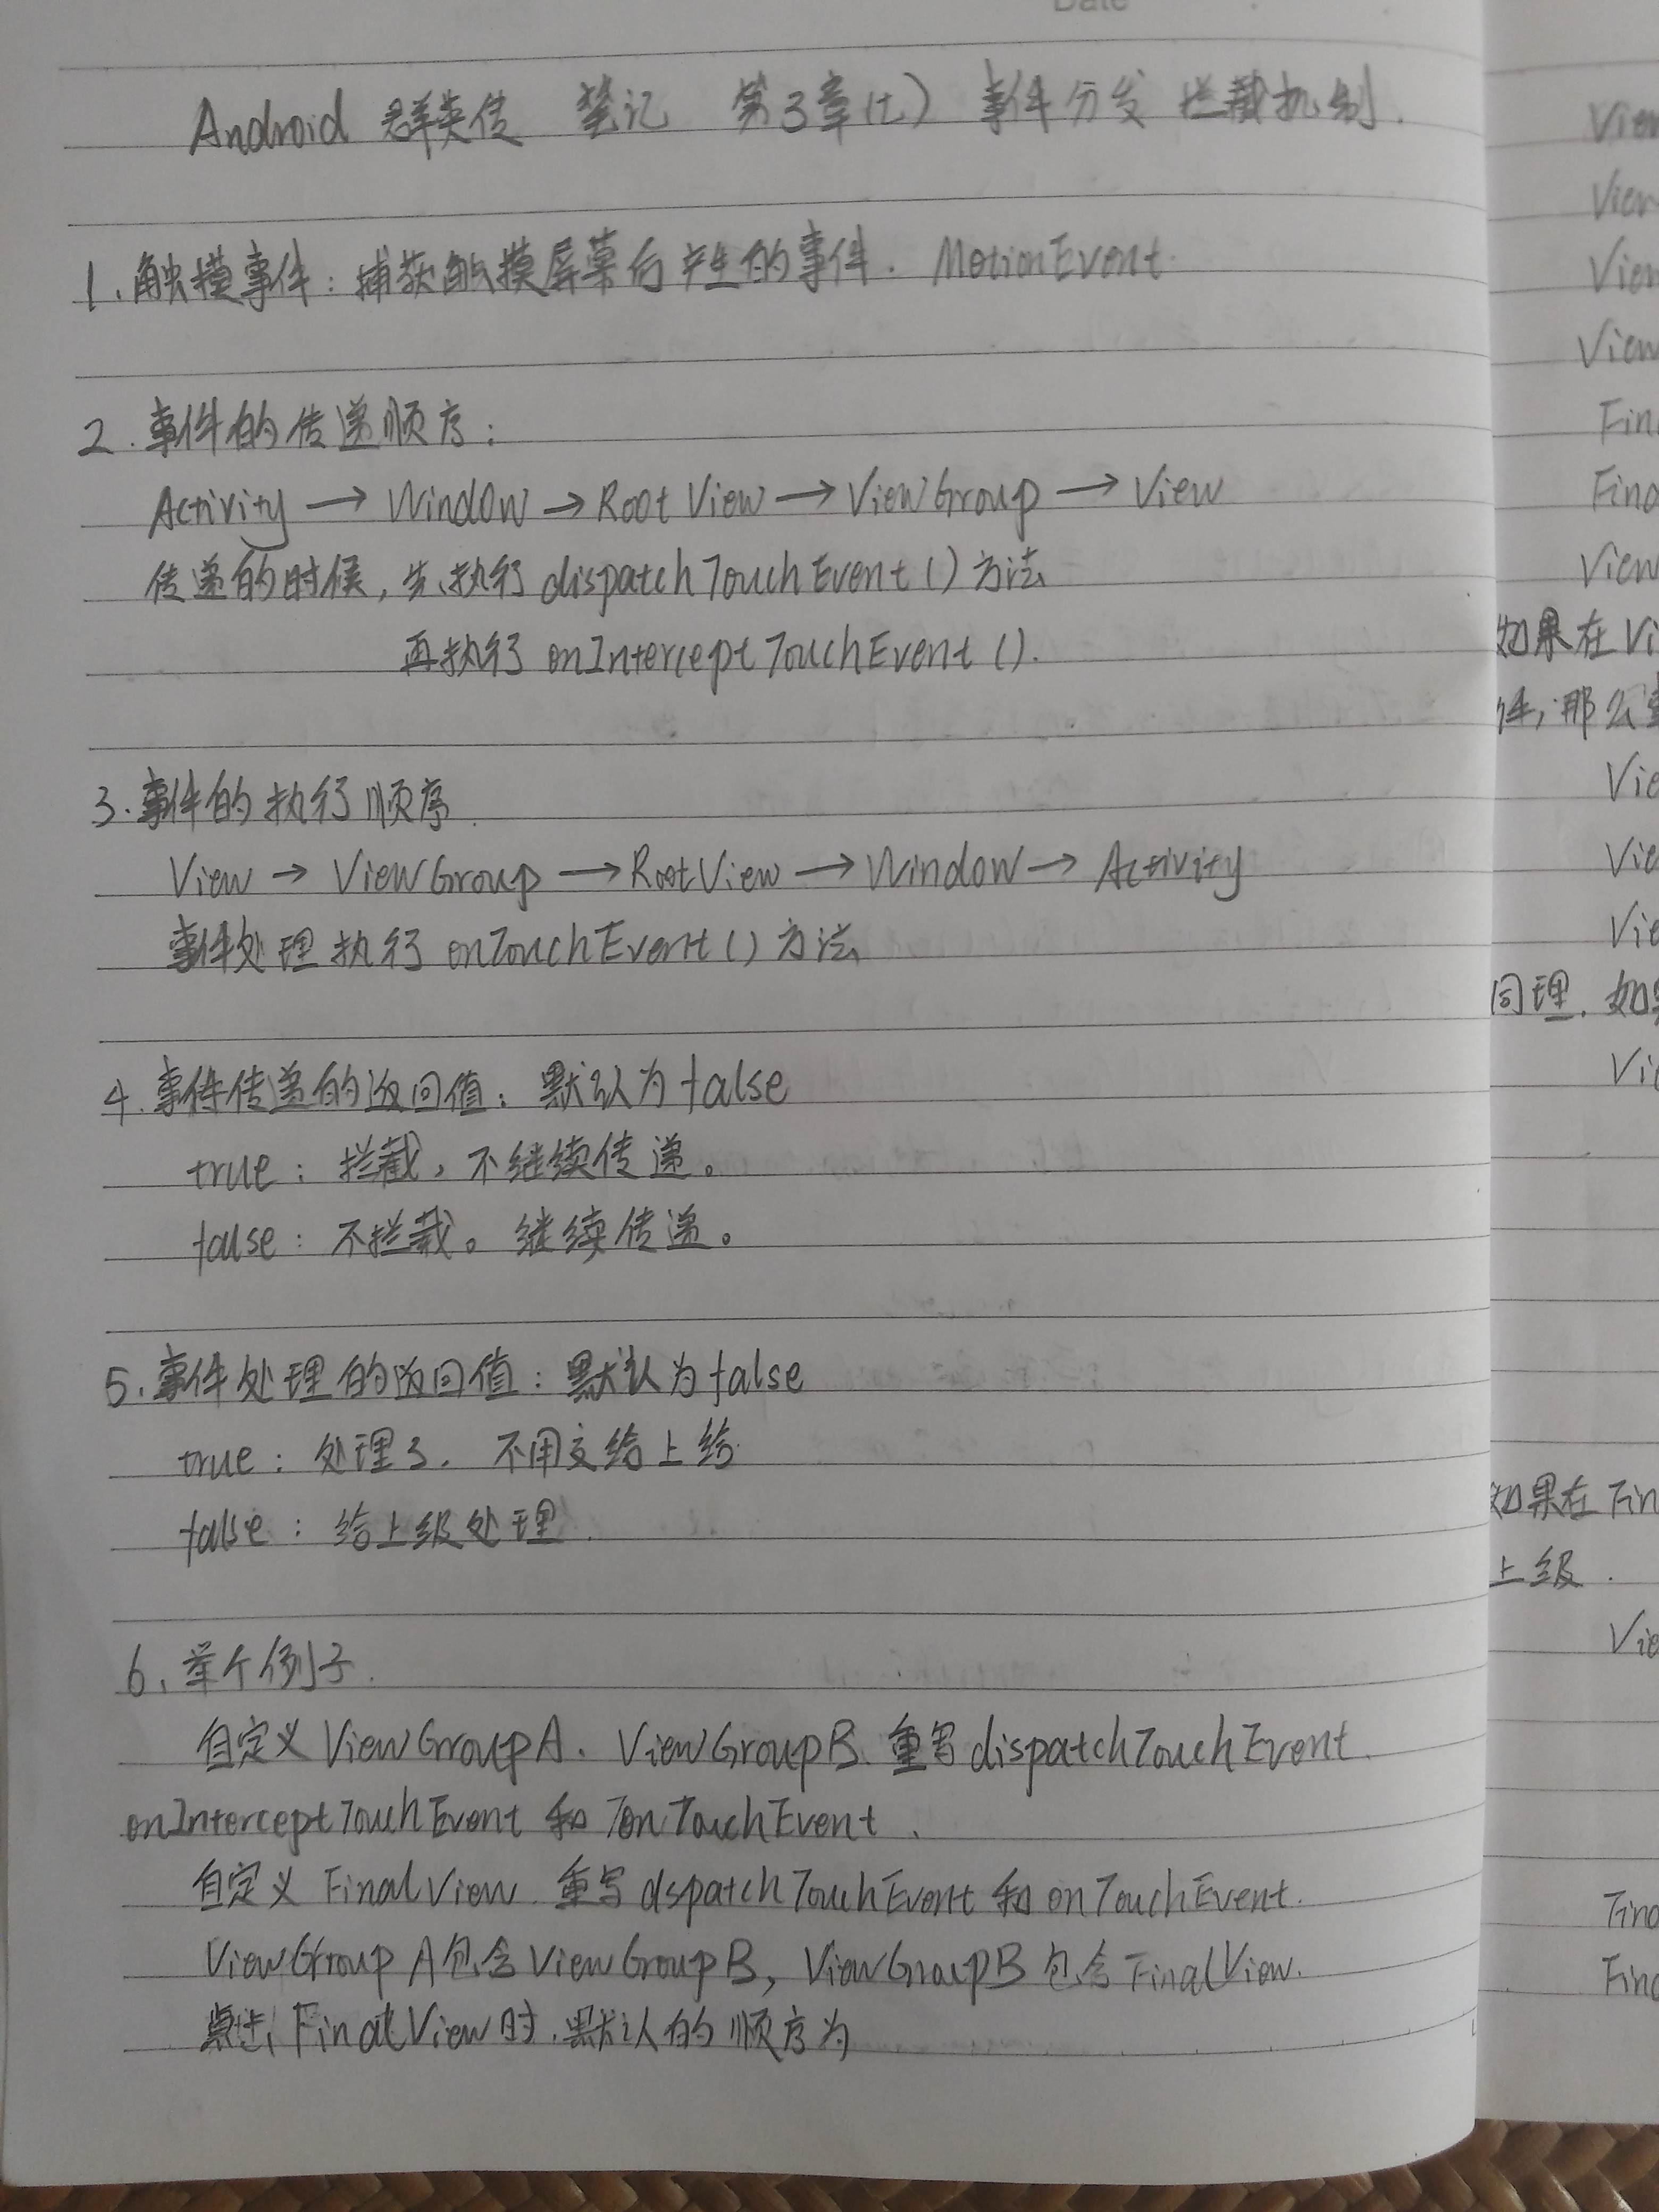 Date
Android 群英传 笔记 第3章(七) 事件分发 拦截机制.
1.触摸事件: 捕获触摸屏幕后产生的事件. MotionEvent
2.事件的传递顺序:
Activity → Window → Root View → ViewGroup → View
传递的时候,先执行 dispatchTouchEvent()方法
再执行 onInterceptTouchEvent().
3.事件的执行顺序.
View → ViewGroup → RootView → Window → Activity
事件处理执行 onTouchEvent()方法
4.事件传递的返回值: 默认为 false
true: 拦截,不继续传递。
false: 不拦截。继续传递。
5.事件处理的返回值: 默认为 false
true: 处理了. 不用交给上给
false: 给上级处理.
6.举个例子.
自定义 ViewGroupA. ViewGroupB. 重写 dispatchTouchEvent.
onInterceptTouchEvent 和 onTouchEvent.
自定义 FinalView. 重写 dspatchTouchEvent 和 onTouchEvent.
ViewGroup A包含 ViewGroup B, ViewGroupB 包含 FinalView.
点击 FinalView时.默认的顺序为
View
View
View
View
Fin
Fina
View
如果在Vi
件,那么事
Vie
Vie
Vie
同理.如果
Vie
如果在 Fin
上级.
Vie
Fina
Fina